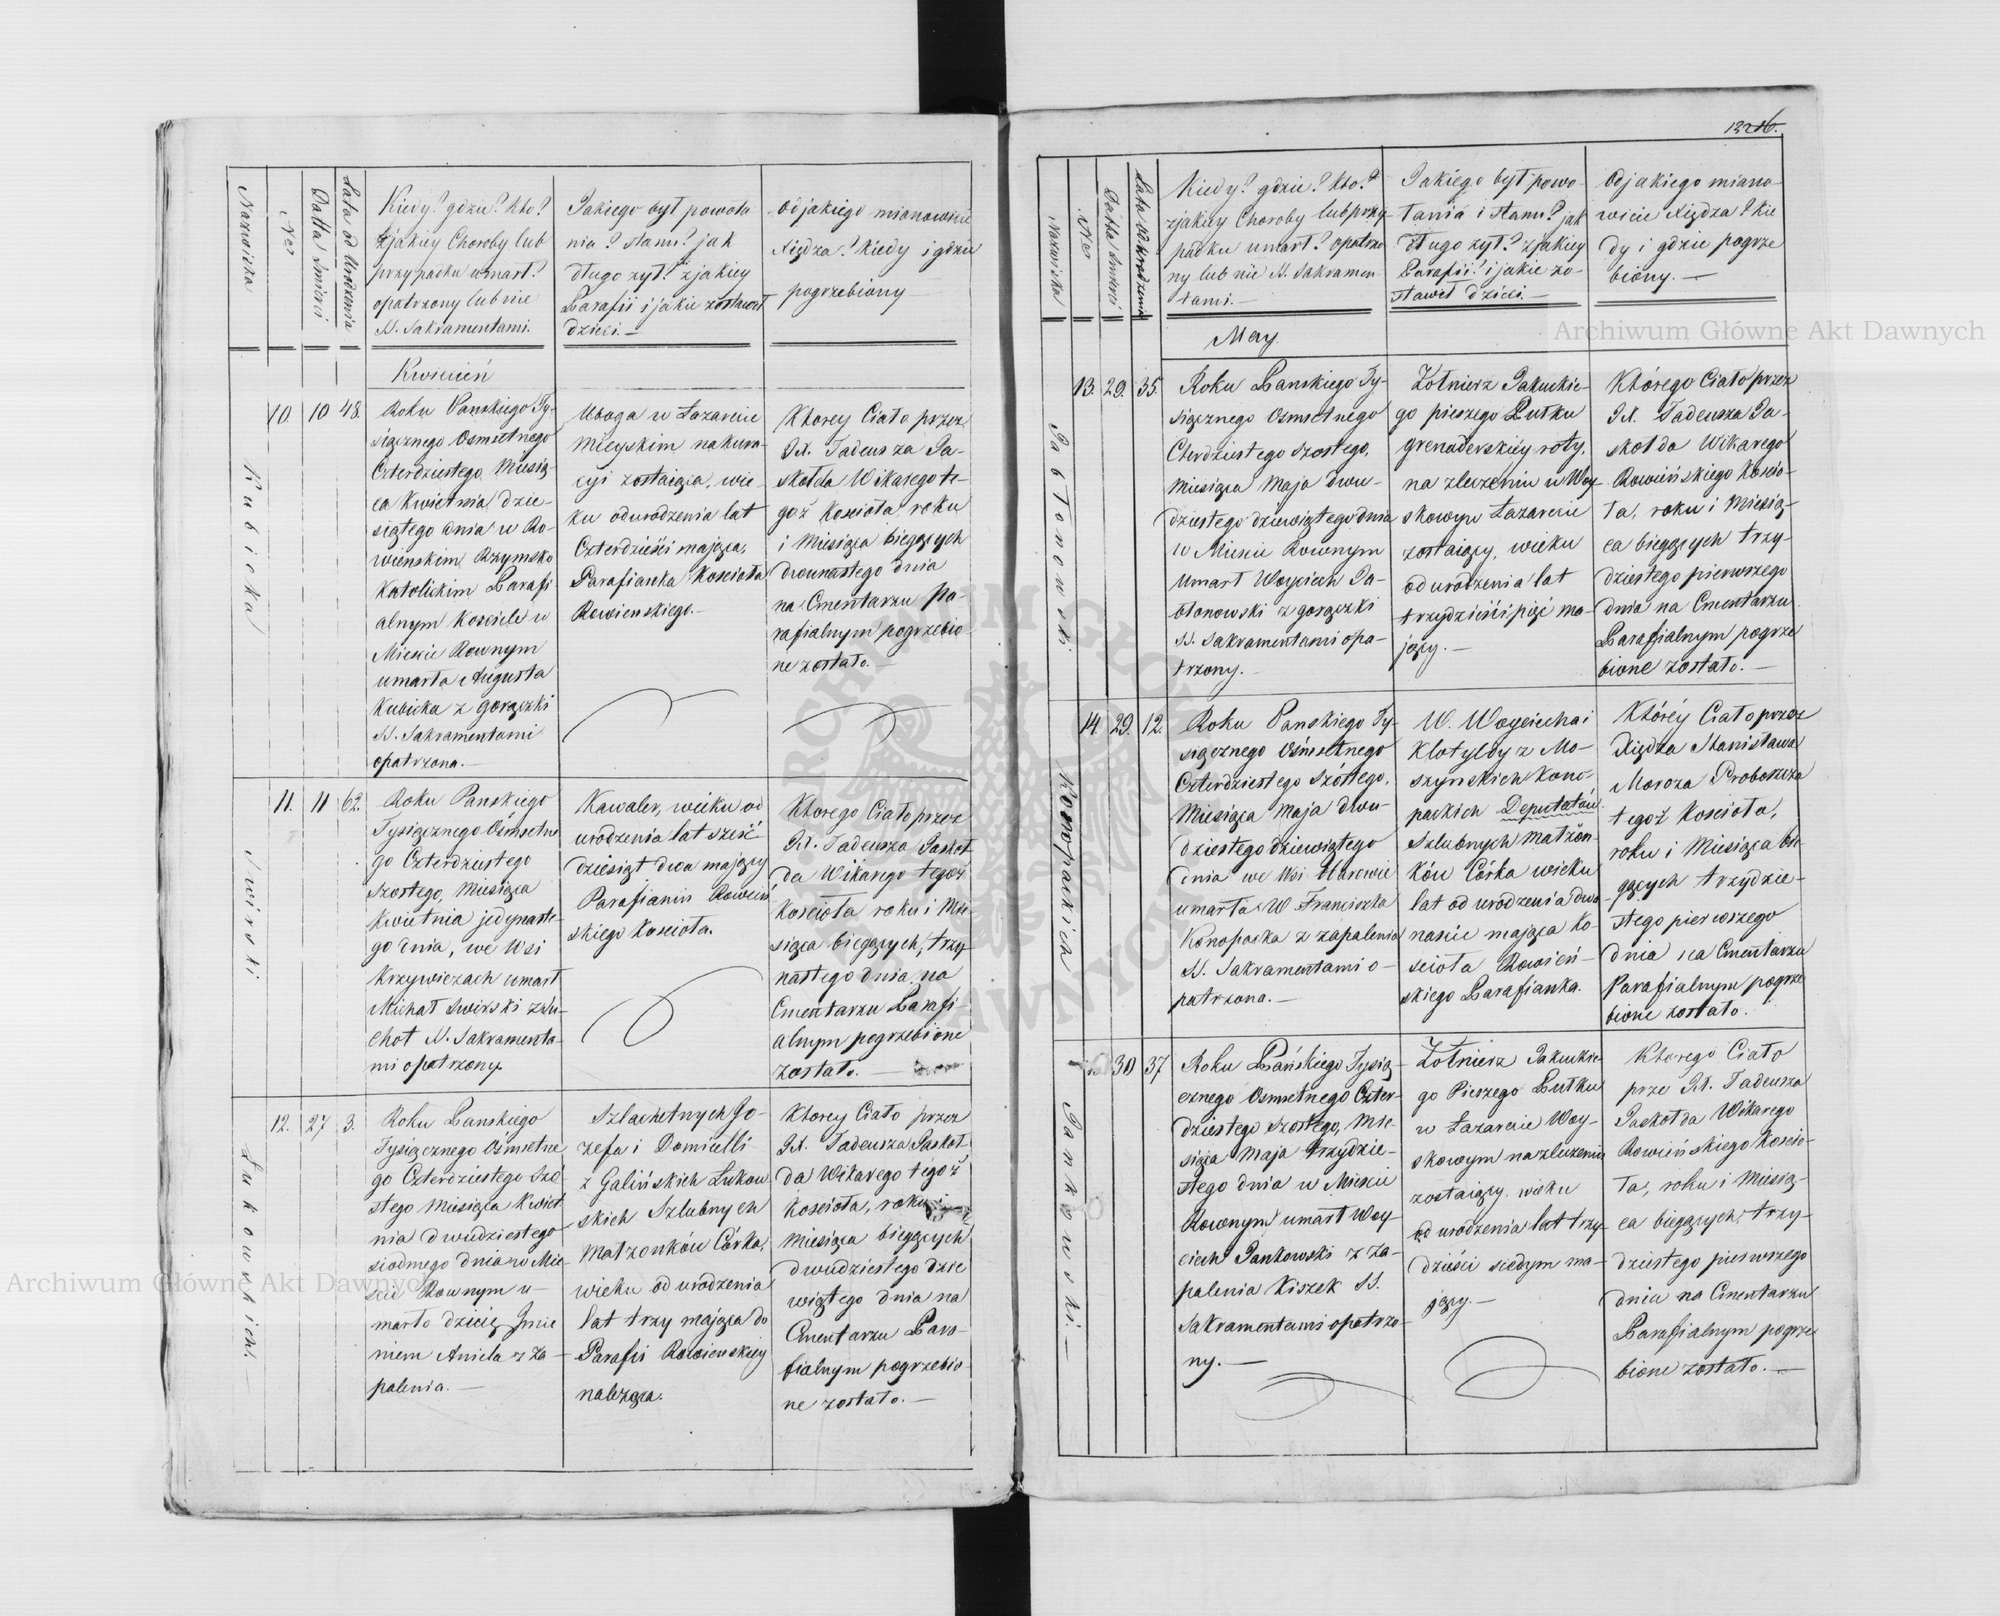 Nazwiska
Nro
Datta Śmierci
Lata od Urodzenia
Kiedy? gdzie? kto?
z jakiey Choroby lub
przypadku umarł?
opatrzony lub nie
SS. Sakramentami.
Jakiego był powoła
nia? stanu? jak
długo żył? z jakiey
Parafii i jakie zostawił
dzieci. —
Od jakiego mianowicie
Xiędza? kiedy i gdzie
pogrzebiony —
Kwiecień
Kubicka
10. 10 48.
Roku Panskiego Ty-
siącznego Osmsetnego
Czterdziestego Miesią-
ca Kwietnia dzie-
siątego dnia w Ro-
wienskim Rzymsko
Katolickim Parafi
alnym Kosciele w
Miescie Rownym
umarła Augusta
Kubicka z gorączki
SS. Sakramentami
opatrzona. —
Uboga w Łazarecie
Mieyskim na kura-
cyi zostaiąca, wie-
ku od urodzenia lat
Czterdzieści mająca,
Parafianka Kosciola
Rowienskiego. —
Ktorey Ciało przez
JX. Tadeusza Pa-
skołda Wikarego te-
goż Kosciola roku
i Miesiąca bieżących
dwunastego dnia
na Cmentarzu Pa-
rafialnym pogrzebio-
ne zostało. —
Swirski
11. 11 62.
Roku Panskiego
Tysiącznego Osmsetne
go Czterdziestego
szostego, Miesiąca
Kwietnia jedynaste-
go dnia, we Wsi
Krzywiczach umarł
Michał Swirski z Su-
chot SS. Sakramenta-
mi opatrzony.
Kawaler, wieku od
urodzenia lat sześć
dziesiąt dwa mający
Parafianin Rowień
skiego Kosciola.
Ktorego Ciało przez
JX. Tadeusza Paskoł
da Wikarego tegoż
Kosciola roku i Mie-
siąca bieżących, trzy
nastego dnia, na
Cmentarzu Parafi-
alnym pogrzebione
zostało. —
Łukowskich. —
12. 27 3.
Roku Panskiego
Tysiącznego Osmsetne
go Czterdziestego Szó
stego Miesiąca Kwiet
nia dwudziestego
siodmego dnia w Mie
scie Rownym u-
marło dziecię Imie
niem Aniela z Za-
palenia. —
Szlachetnych Jo-
zefa i Domicelli
z Galińskich Łukow
skich Szlubnych
Małzonków Córka,
wieku od urodzenia
lat trzy mająca do
Parafii Rowienskiey
należąca.
Ktorey Ciało przez
JX. Tadeusza Paskoł
da Wikarego tegoż
Kosciola, roku i
Miesiąca bieżących
dwudziestego dzie
wiątego dnia na
Cmentarzu Para-
fialnym pogrzebio-
ne zostało. —
Nazwiska
Nro
Datta Śmierci
Lata Od Urodzenia
Kiedy? gdzie? kto?
z jakiey Choroby lub przy-
padku umarł? opatrzo
ny lub nie SS. Sakramen-
tami. —
Jakiego był powo-
łania i stanu? jak
długo żył? z jakiey
Parafii? i jakie zo-
stawił dzieci. —
Od jakiego miano-
wicie Xiędza? Kie
dy i gdzie pogrze
biony. —
May
Jabłonowski
13. 29. 35.
Roku Panskiego Ty-
siącznego Osmsetnego
Cterdziestego szostego,
Miesiąca Maja dwu-
dziestego dziewiątego dnia
w Miescie Rownym
umarł Woyciech Ja-
błonowski z gorączki
SS. Sakramentami opa-
trzony. —
Żołnierz Jakuckie-
go pieszego Pułku
Grenaderskiey roty,
na zleczeniu w Woy-
skowym Łazarecie
zostaiący, wieku
od urodzenia lat
trzydzieści pięć ma-
jący. —
Którego Ciało przez
JX. Tadeusza Pa-
skołda Wikarego
Rowieńskiego Koscio-
ła, roku i Miesią-
ca bieżących trzy-
dziestego pierwszego
dnia na Cmentarzu
Parafialnym pogrze
bione zostało. —
Konopackich
14. 29. 12.
Roku Panskiego Ty-
siącznego Ośmsetnego
Czterdziestego Szóstego,
Miesiąca Maja dwu-
dziestego dziewiątego
dnia we Wsi
umarła W Franciszka
Konopacka z zapalenia
SS. Sakramentami o-
patrzona. —
W. Woyciecha i
Klotyldy z Mo-
szynskich Kono-
packich Deputatów
Szlubnych Małżon-
ków Córka wieku
lat od urodzenia dwa
naście mająca Ko-
sciola Rowień-
skiego Parafianka.
Którey Ciało przez
Xiędza Stanisława
Moroza Proboszcza
tegoż Kosciola,
roku i Miesiąca bie-
żących trzydzie-
stego pierwszego
dnia na Cmentarzu
Parafialnym pogrze
bione zostało.
Jankowski. —
15. 30 37
Roku Pańskiego Tysią-
cznego Osmsetnego Czter-
dziestego szostego, Mie-
siąca Maja trzydzie-
stego dnia w Miescie
Rownym umarł Woy-
ciech Jankowski z Za-
palenia Kiszek SS.
Sakramentami opatrzo-
ny. —
Żołnierz Jakuckie-
go Pieszego Pułku
w Łazarecie Woy-
skowym na zleczeniu
zostaiący, wieku
od urodzenia lat trzy-
dzieści siedym ma-
jący. —
Ktorego Ciało
prze JX. Tadeusza
Paskołda Wikarego
Rowieńskiego Koscio-
ła, roku i Miesią-
ca bieżących, trzy-
dziestego pierwszego
dnia na Cmentarzu
Parafialnym pogrze
bione zostało. —
Archiwum Główne Akt Dawnych
Archiwum Główne Akt Dawnych